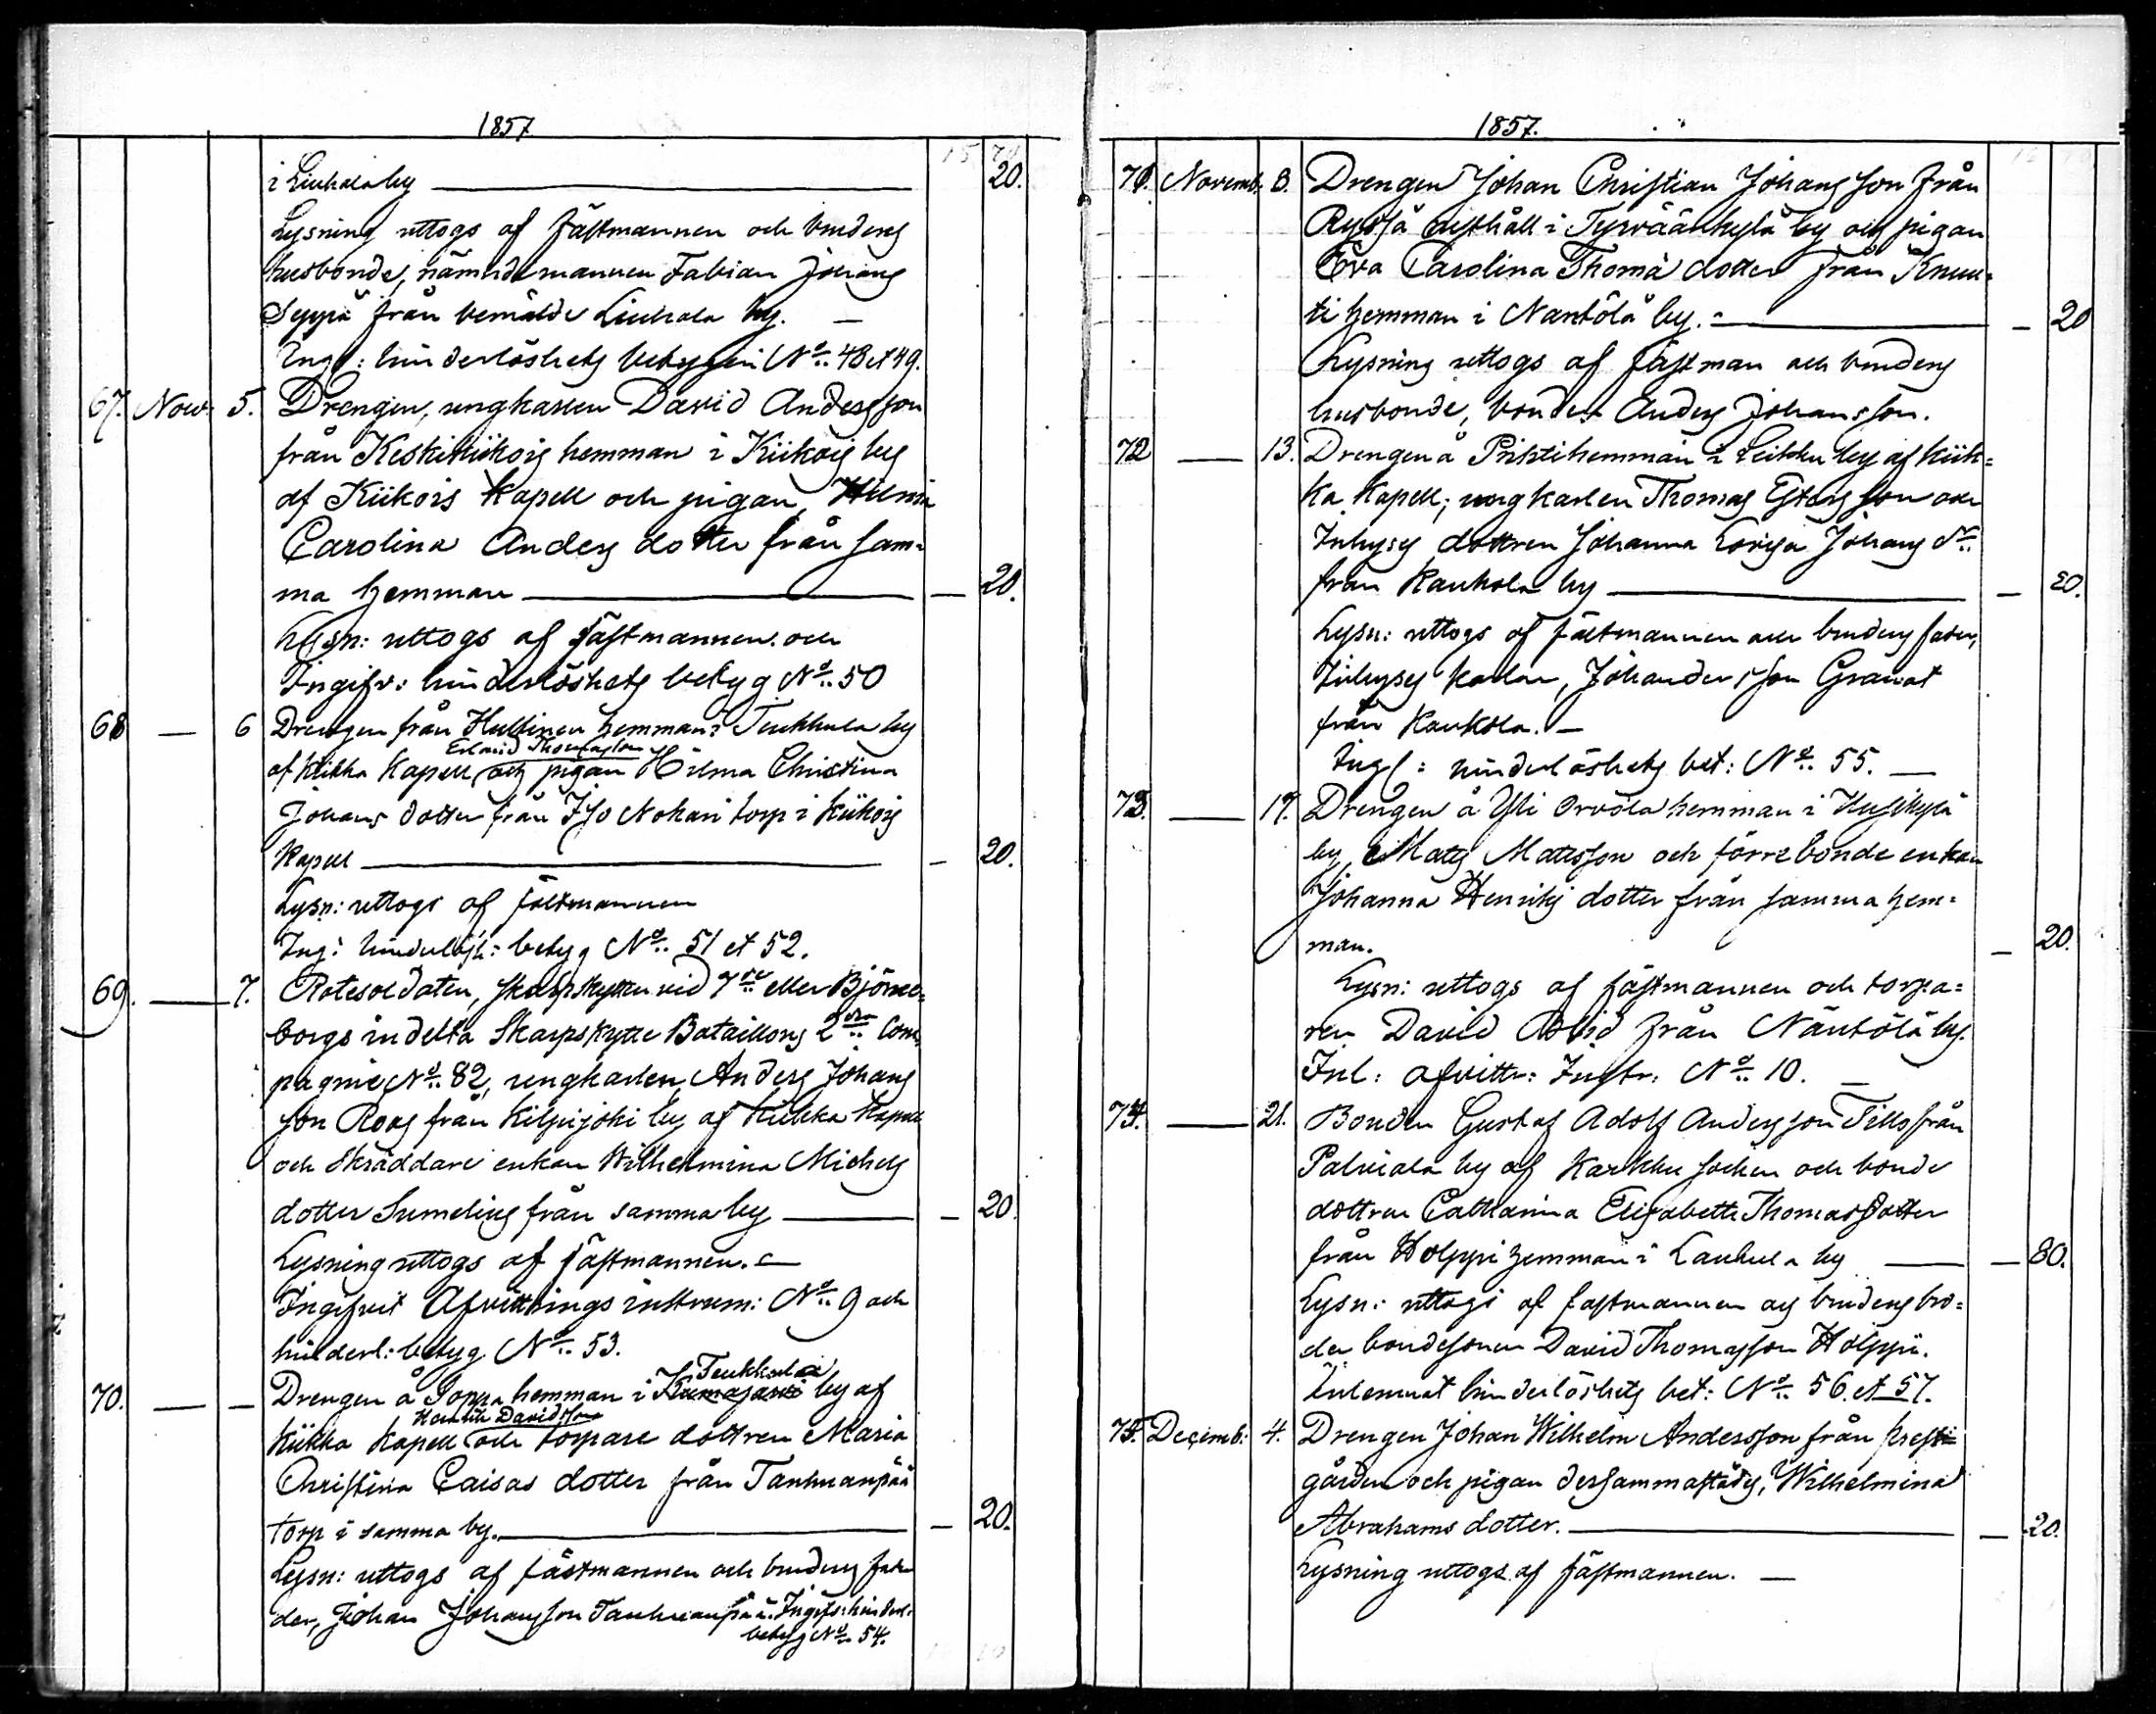 1857
i Liuhala by — 20.
Lysning uttogs af fästmannen och brudens
husbonde, nämndemannen Fabian Johans
Seppä från bemälde Liuhala by. —
Ingf: hinderlöshets betygen No. 48 et 49.
67. Nov. 5. Drengen, ungkarlen David Andersson
från Keskikiikois hemman i Kiikois by
af Kiikois Kapell och pigan, Helmin
Carolina Anders dotter från sam-
ma hemman — 20.
Lysn: uttogs af fästmannen och
Ingifv: hinderlöshets betyg No. 50
68 — 6 Drengen från Hullinen hemman i Teukkula by
Erland Thomasson
af Kiikka Kapell, och pigan Hilma Christina
Johans dotter från Iso Nohari torp i Kiikois
Kapell — 20.
Lysn: uttogs af fästmannen
Ing: hinderlösh: betyg No. 51 et 52.
69. — 7. Rotesoldaten, skarpskytten vid 7de eller Björne-
borgs indelta Skarpskytte Bataillons 2dra Com-
pagnie No. 82, ungkarlen, Anders Johans
son Roos från Kilpijoki by af Kiikka Kapell
och Skräddare enkan Wilhelmina Michels
dotter Sumelius från samma by — 20
Lysning uttogs af fästmannen. —
Ingifvit Afvittrings instrum: No. 9 och
hinderl: betyg No. 53.
Teukkula
70. — — Drengen å Soppa hemman i by af
Davidsson
Kiikka Kapell och torpare dottren Maria
Christina Caisas dotter från Tanhuanpää
torp i samma by. — 20.
Lysn: uttogs af fästmannen och brudens fa-
der, Johan Johansson Tanhuanpää. Ingifv: hinderl:
betyg No. 54.
1857.
71. Novemb. 8. Drengen Johan Christian Johansson från
Ryssä rusthåll i Tyrväänkylä by och pigan
Eva Carolina Thomä dotter från Knuu-
ti hemman i Nantölä by. — 20
Lysning uttogs af fästman och brudens
husbonde, bonden Anders Johansson.
72 — 13. Drengen å Prihti hemman i Leikku by af Kiik-
ka Kapell; ungkarlen Thomas Estersson och
Inhyses dottren Johanna Lovisa Johans dr
från Kaukola by — 20.
Lysn: uttogs af fästmannen och brudens fader,
Inhyses karlen, Johan Granat
från Kaukola. —
Ingf: hinderlöshets bet: No. 55. —
73. — 19. Drengen å Yli Orvola hemman i
by, Mats Matsson och förre bonde enkan
Johanna Henriks dotter från samma hem-
man. — 20.
Lysn: uttogs af fästmannen och torpa-
ren David från Nantölä by.
Inl: afvittr: Instr. No. 10. —
74. — 21. Bonden Gustaf Adolf Andersson Tills från
Palviala by af Karkku socken och bonde
dottren Catharina Elisabetta Thomasdotter
från Holppi hemman i Lauhula by — 80.
Lysn: uttogs af fastmannen och brudens bro-
der bondesonen David Thomasson Holppi.
Inlemnat hinderlöshets bet: No. 56. et 57.
75. Decemb: 4. Drengen Johan Wilhelm Andersson från Prest-
gården och pigan dersammastädes, Wilhelmina
Abrahams dotter. — 20.
Lysning uttogs af fästmannen. —